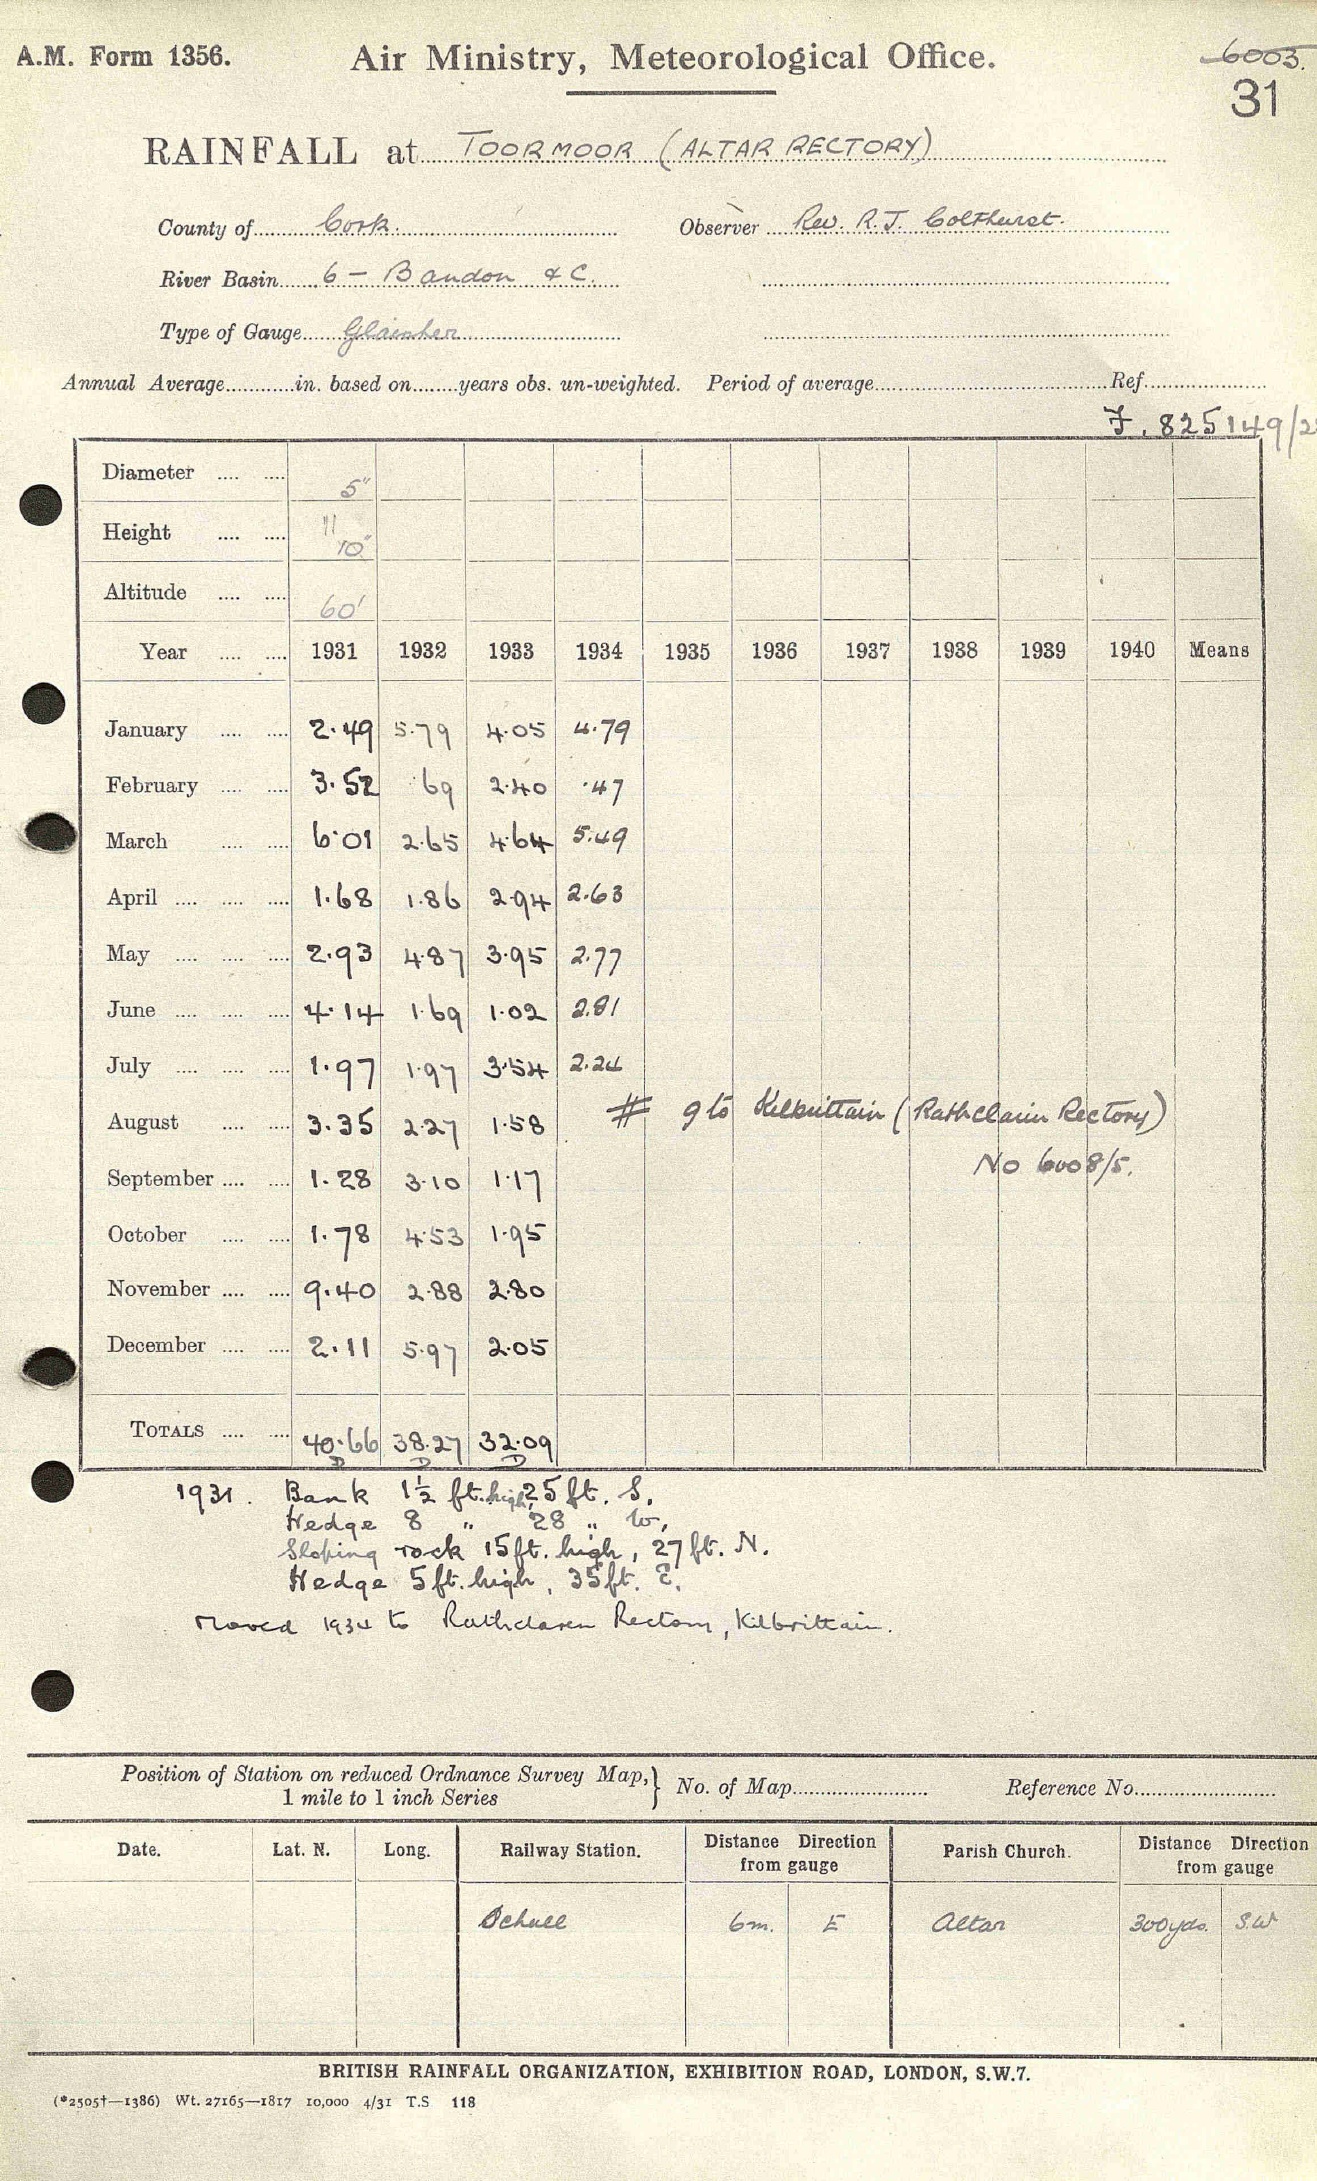 A.M. Form 1356. Air Ministry, Meteorological Office. 6003.
31
RAINFALL at TOORMOOR (ALTAR RECTORY)
County of Cork. Observer Rev. R.J. Colthurst.
River Basin 6 - Bandon &c.
Type of Gauge Glaisher
Annual Average in. based on years obs. un-weighted. Period of average Ref.
F. 825149/2
Diameter 5"
Height 11" 10"
Altitude 60'
Year 1931 1932 1933 1934 1935 1936 1937 1938 1939 1940 Means
January 2.49 5.79 4.05 4.79
February 3.52 .69 2.40 .47
March 6.01 2.65 4.64 5.49
April 1.68 1.86 2.94 2.63
May 2.93 4.87 3.95 2.77
June 4.14 1.69 1.02 2.81
July 1.97 1.97 3.54 2.24
August 3.35 2.27 1.58 # g to Kilbrittain (Rathclarin Rectory)
No 6008/5.
September 1.28 3.10 1.17
October 1.78 4.53 1.95
November 9.40 2.88 2.80
December 2.11 5.97 2.05
TOTALS 40.66 38.27 32.09
D D D
1931. Bank 1½ ft. high, 25 ft. S.
Hedge 8 " 28 " W.
Sloping rock 15 ft. high, 27 ft. N.
Hedge 5 ft. high, 35 ft. E.
Moved 1934 to Rathclaren Rectory, Kilbrittain.
Position of Station on reduced Ordnance Survey Map, 1 mile to 1 inch Series } No. of Map Reference No.
Date. Lat. N. Long. Railway Station. Distance Direction from gauge Parish Church. Distance Direction from gauge
Schull 6m. E Altar 300yds. S.W
BRITISH RAINFALL ORGANIZATION, EXHIBITION ROAD, LONDON, S.W.7.
(*2505†—1386) Wt. 27165—1817 10,000 4/31 T.S 118